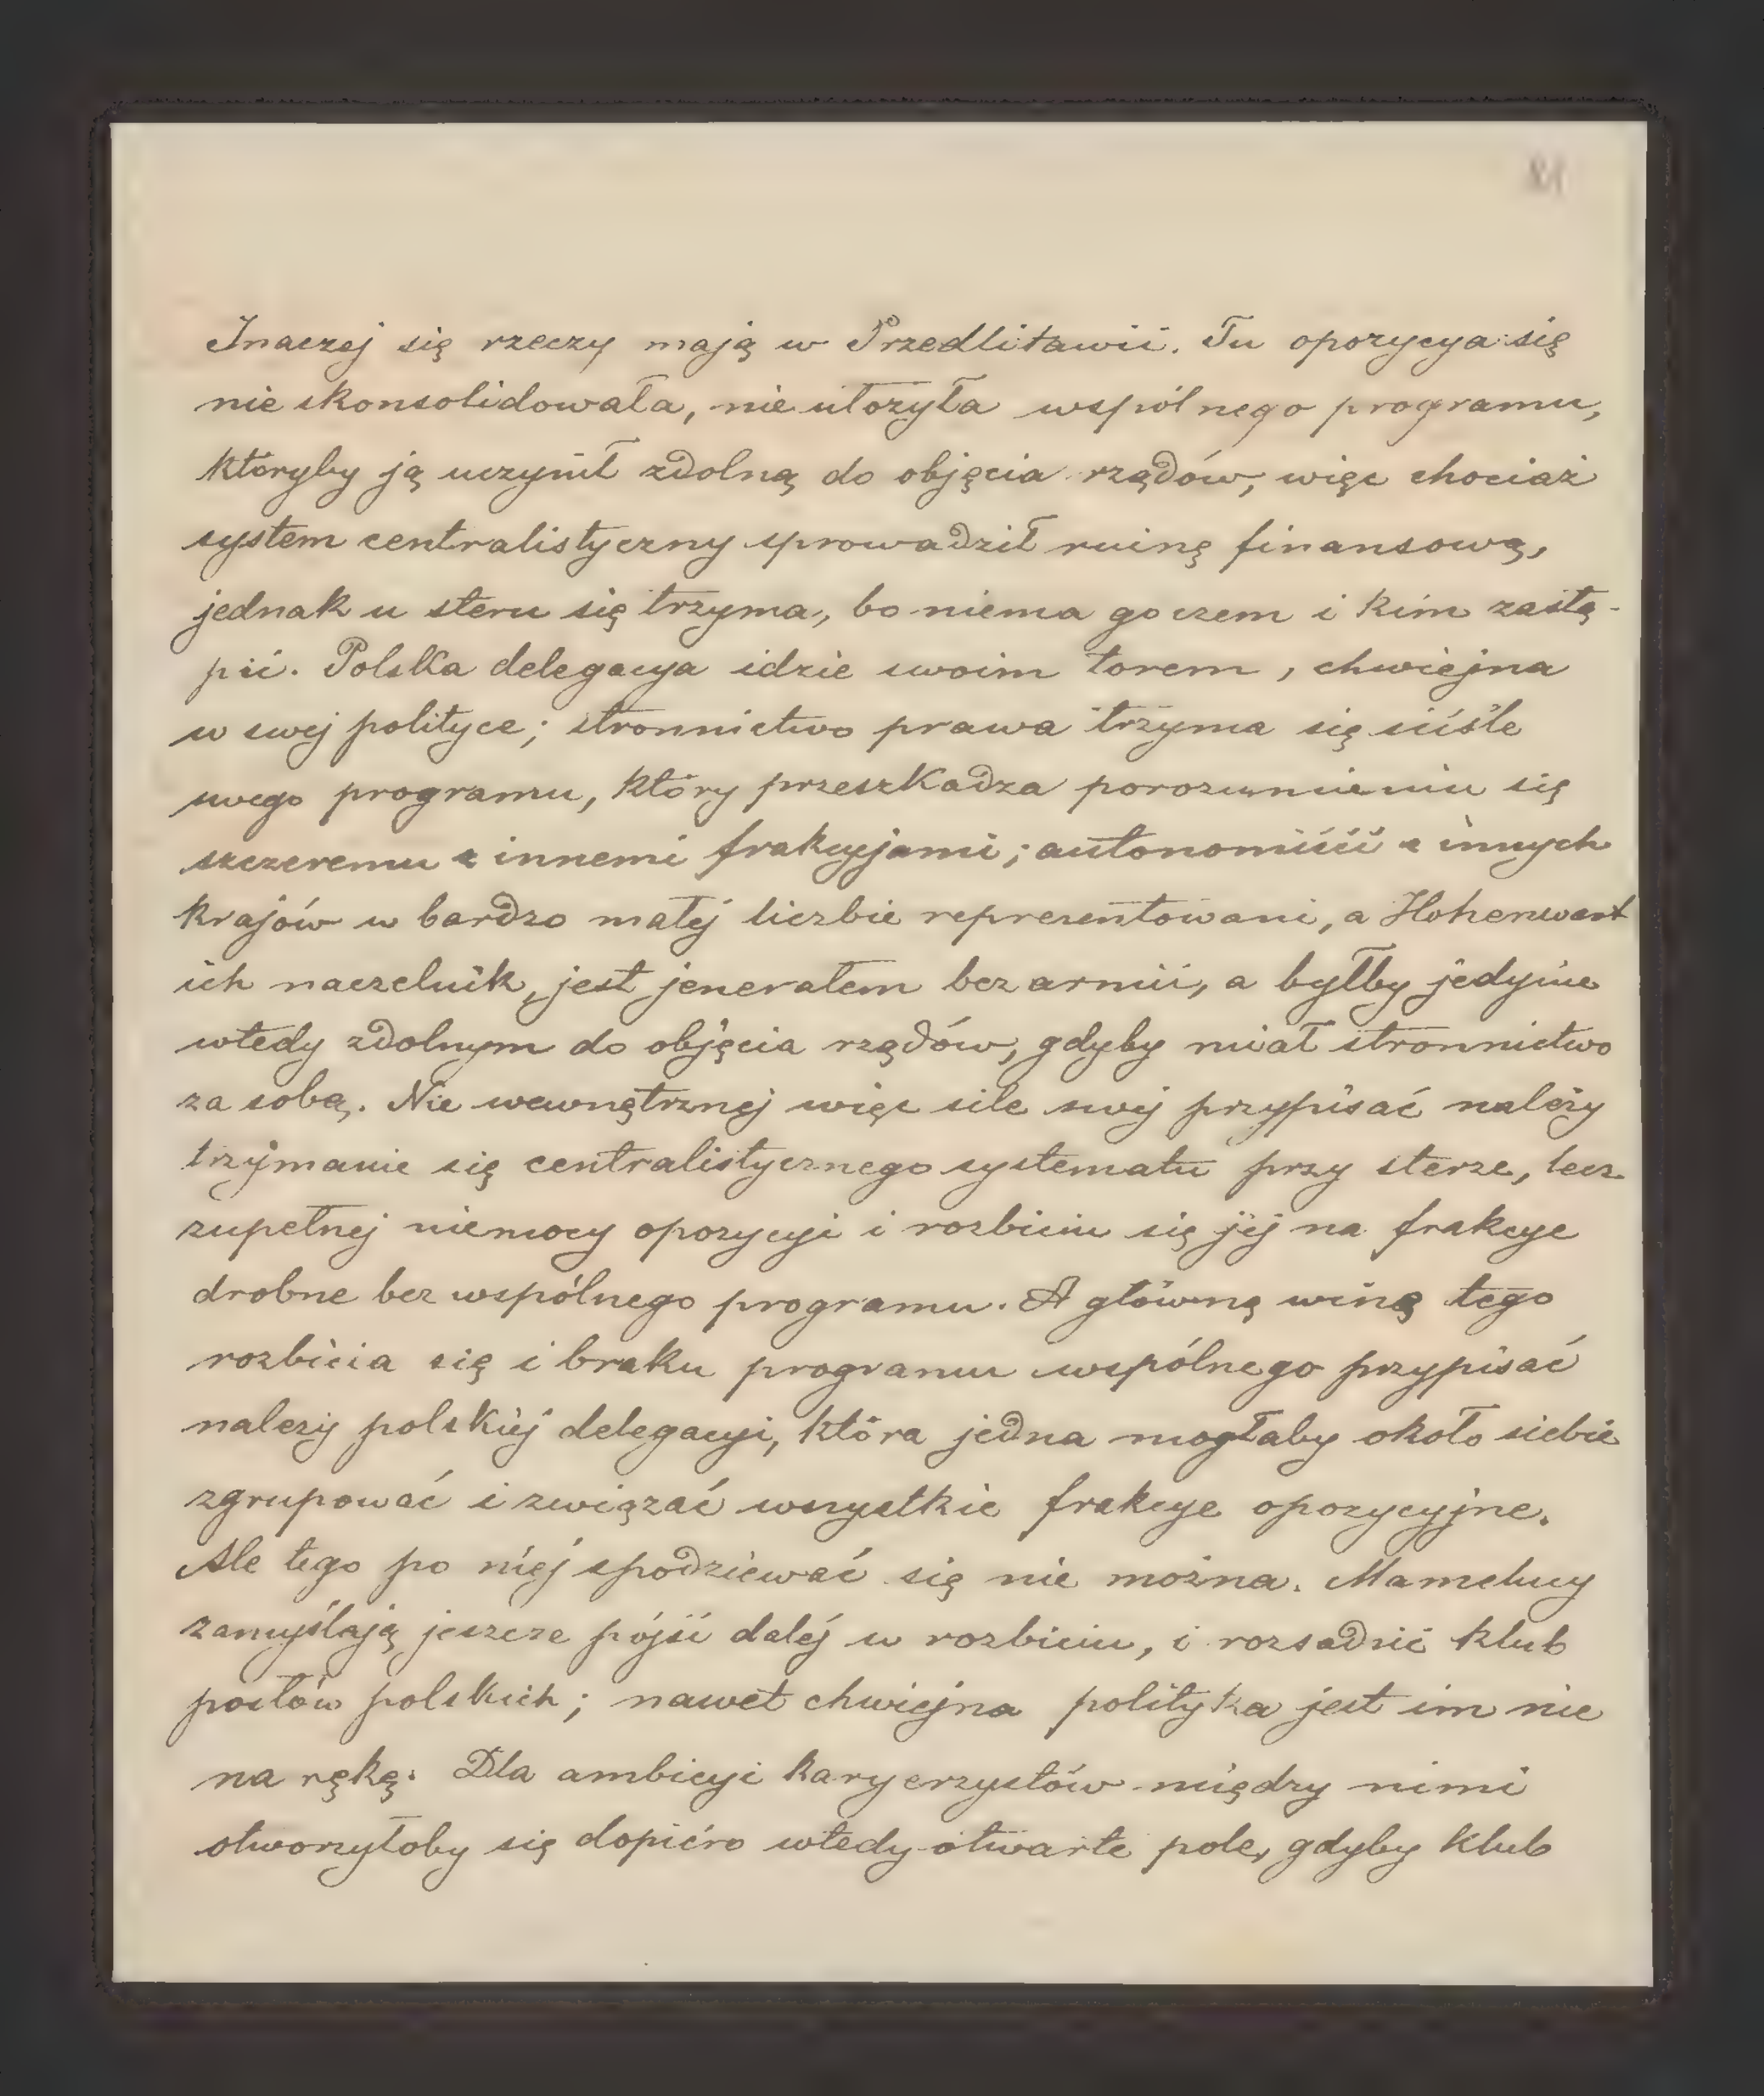 Inaczej się rzeczy mają w Przedlitawii. Tu opozycya się
nie skonsolidowała, nie ułożyła wspólnego programu,
któryby ją uczynił zdolną do objęcia rządów, więc chociaż
system centralistyczny sprowadził ruinę finansową,
jednak u steru się trzyma, bo niema go czem i kim zastą-
pić. Polska delegacya idzie swoim torem, chwiejna
w swej polityce; stronnictwo prawa trzyma się ściśle
swego programu, który przeszkadza porozumieniu się
szczeremu z innemi frakcyjami; autonomiści z innych
krajów w bardzo małej liczbie reprezentowani, a Hohenwart
ich naczelnik, jest jenerałem bez armii, a byłby jedynie
wtedy zdolnym do objęcia rządów, gdyby miał stronnictwo
za sobą. Nie wewnętrznej więc sile swej przypisać należy
trzymanie się centralistycznego systematu przy sterze, lecz
zupełnej niemocy opozycyi i rozbiciu się jéj na frakcye
drobne bez wspólnego programu. A główną winę tego
rozbicia się i braku programu wspólnego przypisać
należy polskiéj delegacyi, która jedna mogłaby około siebie
zgrupować i związać wszystkie frakcye opozycyjne.
Ale tego po niéj spodziewać się nie można. Mamelucy
zamyślają jeszcze pójść daléj w rozbiciu, i rozsadzić klub
posłów polskich; nawet chwiejna polityka jest im nie
na rękę. Dla ambicyi karyerzystów między nimi
otworzyłoby się dopiéro wtedy otwarte pole, gdyby klub